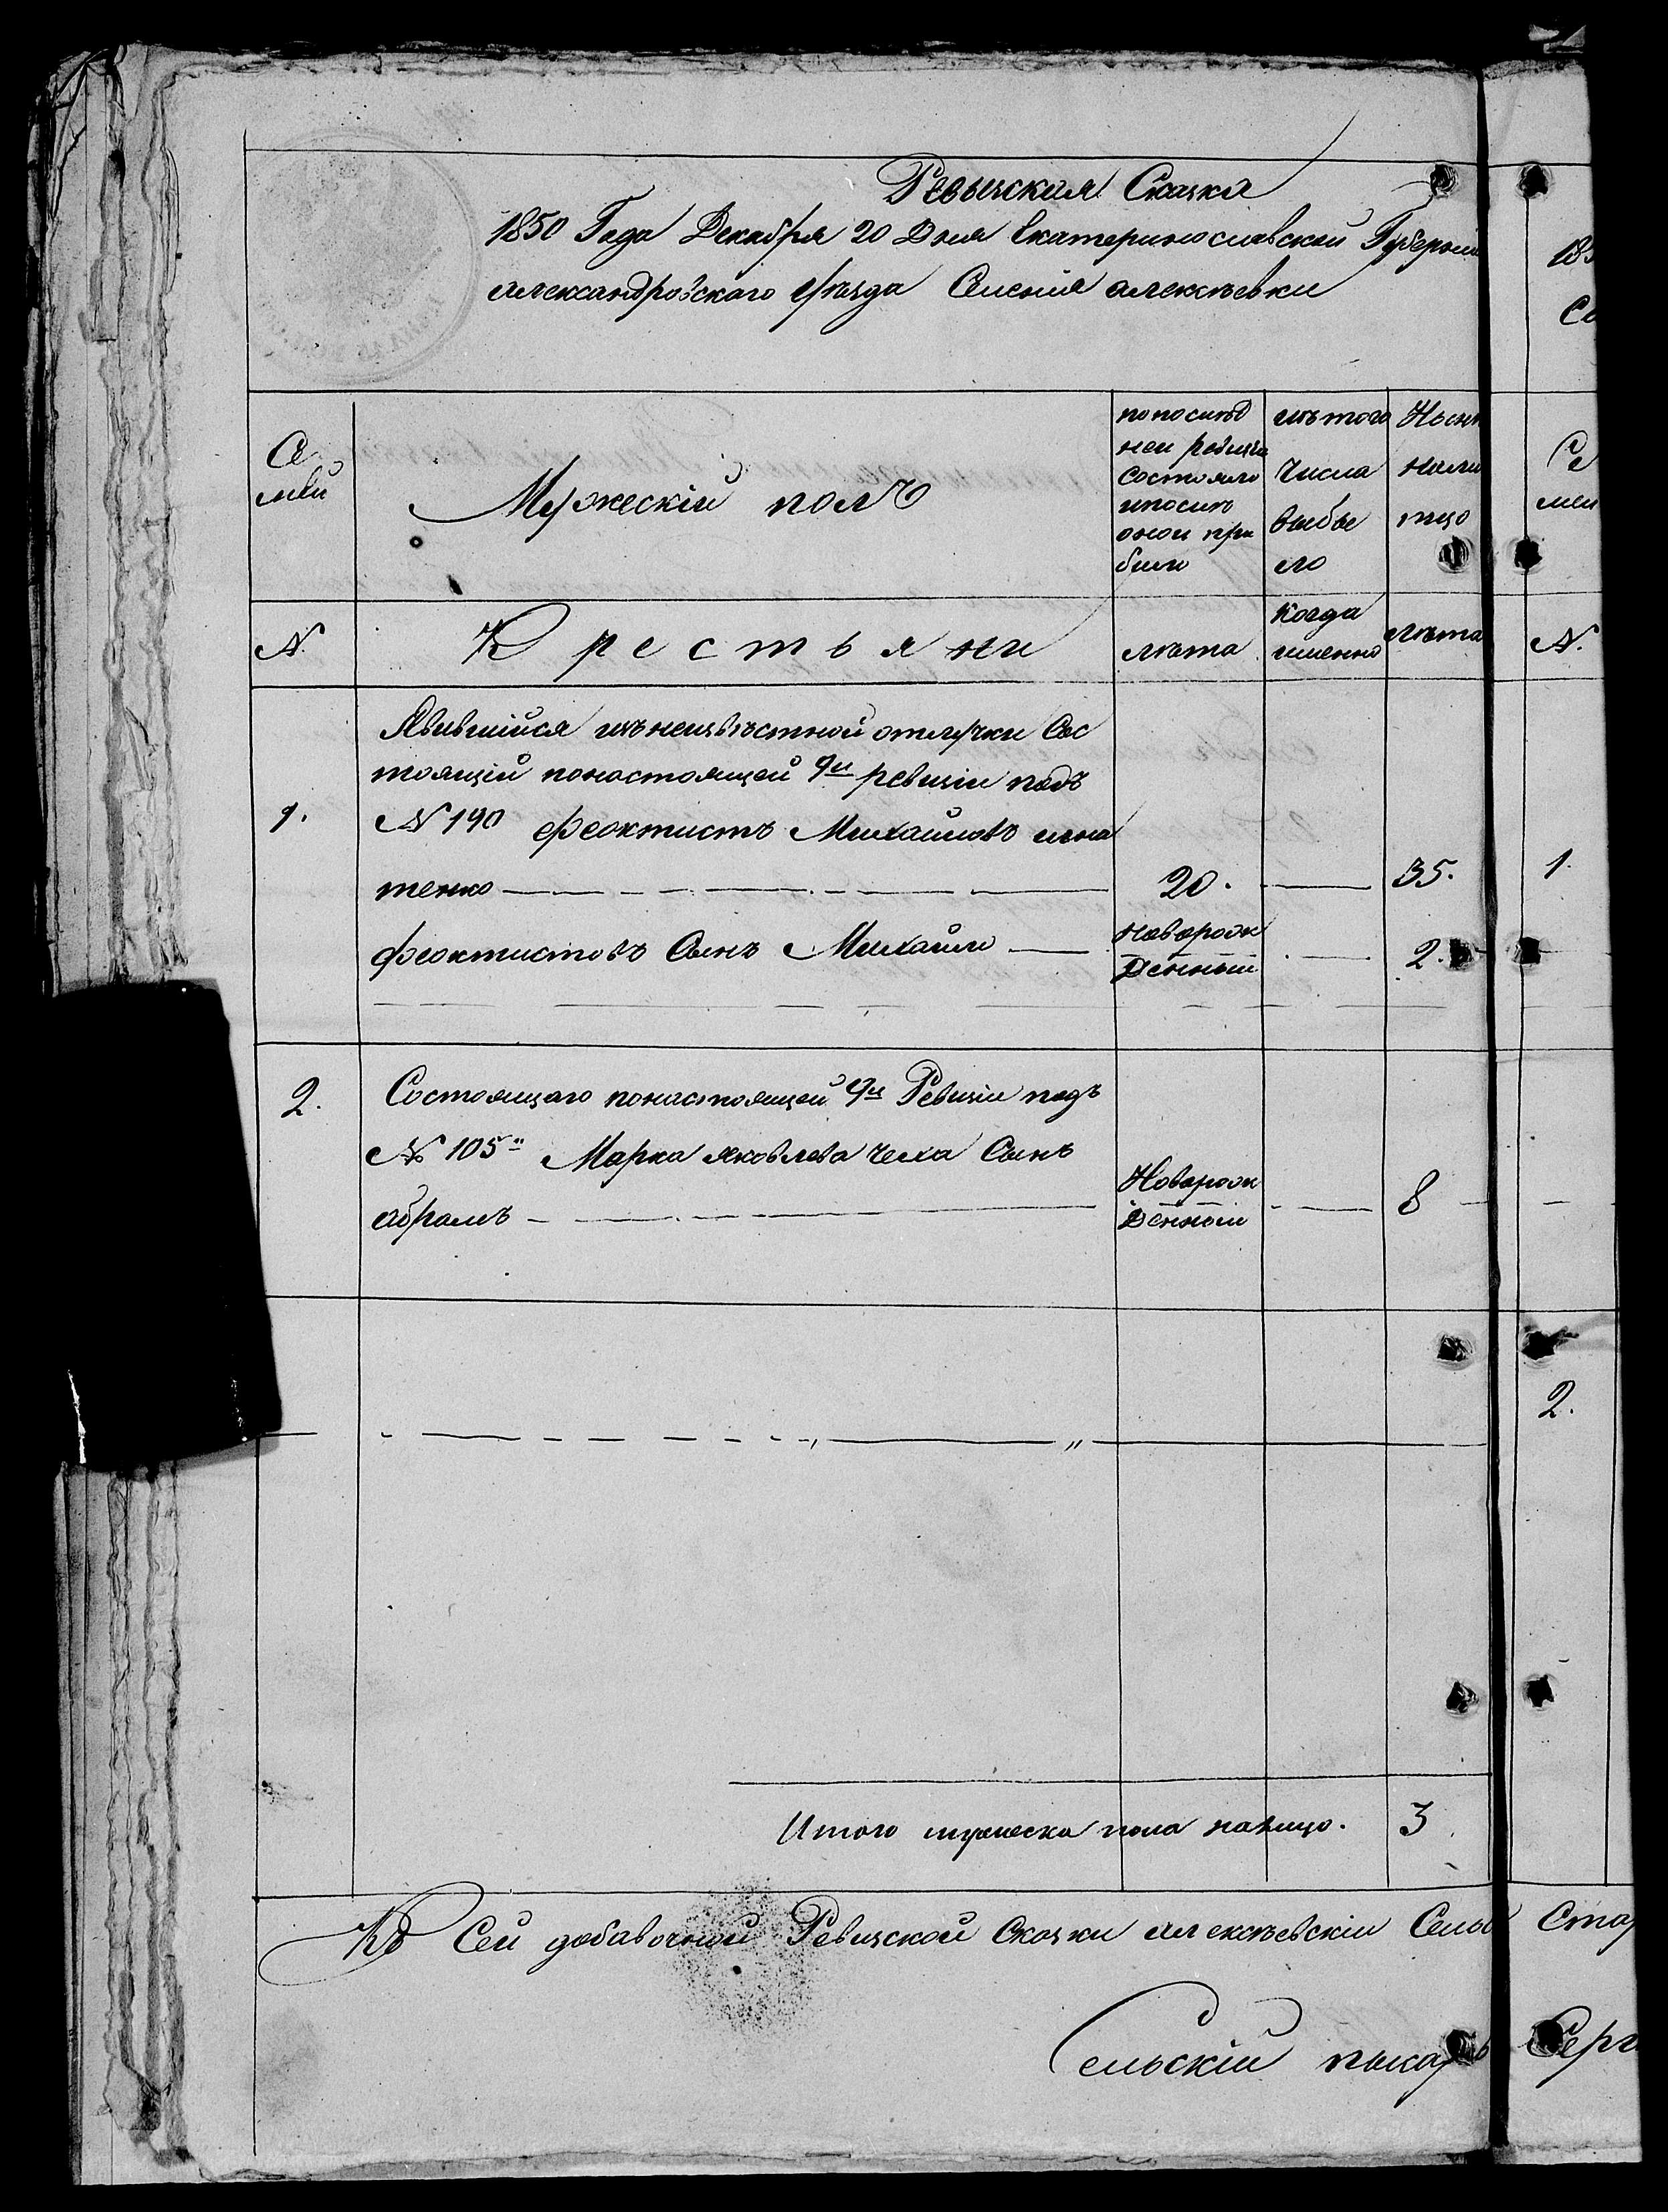 Ревызская Сказка
1850 Года Декабря 20 Дня Екатеринославской Губерніи
александровскаго уѣзда Селенія алексѣевки
Се
мьи
Мужескій полъ
попослѣд
ней ревизіи
состояло
ипослѣ
оной при
было
изъ того
числа
выбы
ло
Нынѣ
нали
тцо
№
Крестьяни
лѣта
когда
именно
лѣта
1.
Явившійся изъ неизвѣстной отлучки Сос
тоящій понастоящей 9й ревизіи подъ
№ 190 феоктистъ Михайловъ игна
тенко
20.
35.
феоктистовъ Сынъ Михайло
новорож
денный
2.
2.
Состоящаго понастоящей 9й Ревизіи подъ
№ 105 Марка яковлева чеха Сынъ
абрамъ
Новорож
денный
8
Итого мужеска пола налицо. 3
Къ Сей добавочной Ревизской Сказки алексѣевскій Сельс
Сельскій пысарь
Се
мьи
№.
1.
2.
Серг